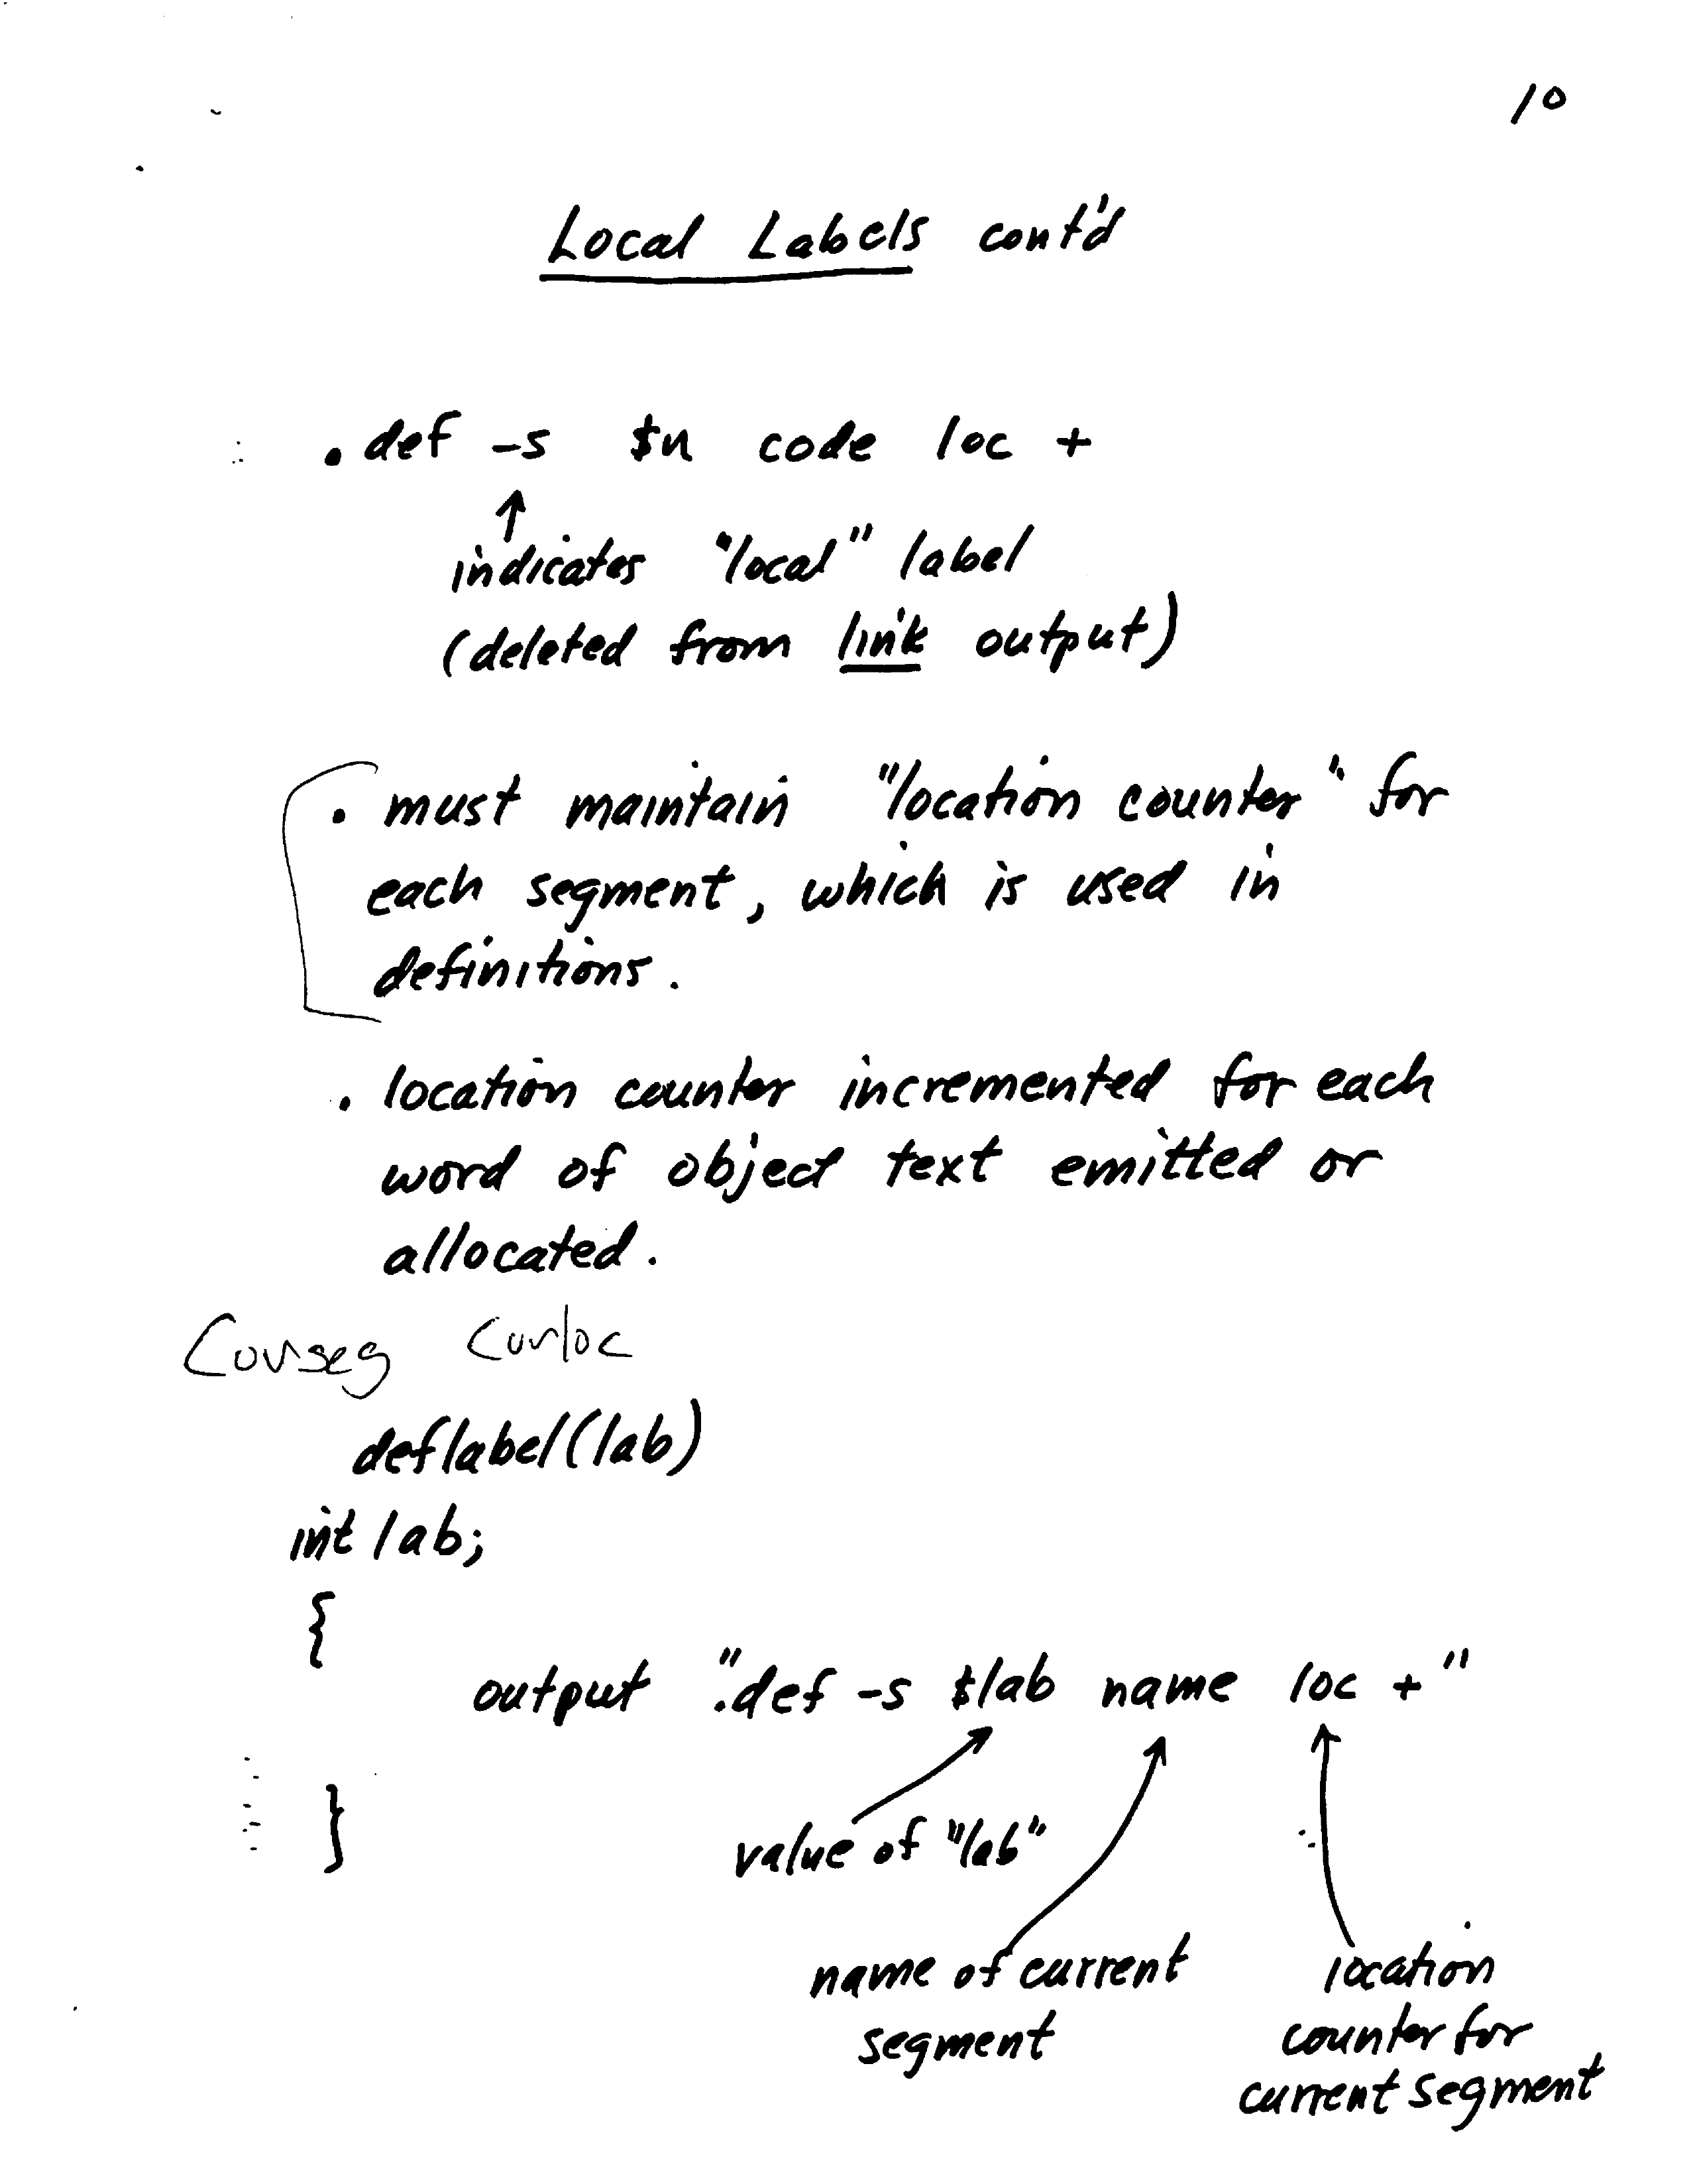 10
Local Labels cont'd
.def -s $n code loc +
indicates "local" label
(deleted from link output)
. must maintain "location counter" for
each segment, which is used in
definitions.
. location counter incremented for each
word of object text emitted or
allocated.
Curseg Curloc
deflabel(lab)
int lab;
{
output ".def -s $lab name loc +"
}
value of "lab"
name of current
segment
location
counter for
current segment